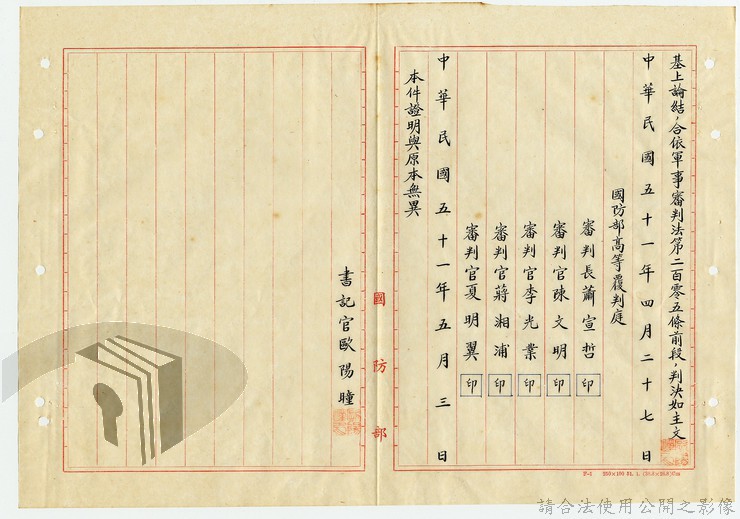 基上論結，合依軍事審判法第二百零五條前段，判決如主文
中華民國五十一年四月二十七日
國防部高等覆判庭
審判長蕭宣哲 印
審判官陳文明 印
審判官李光業 印
審判官蔣湘浦 印
審判官夏明翼 印
中華民國五十一年五月三日
本件證明與原本無異
國防部
書記官歐陽瞳
請合法使用公開之影像